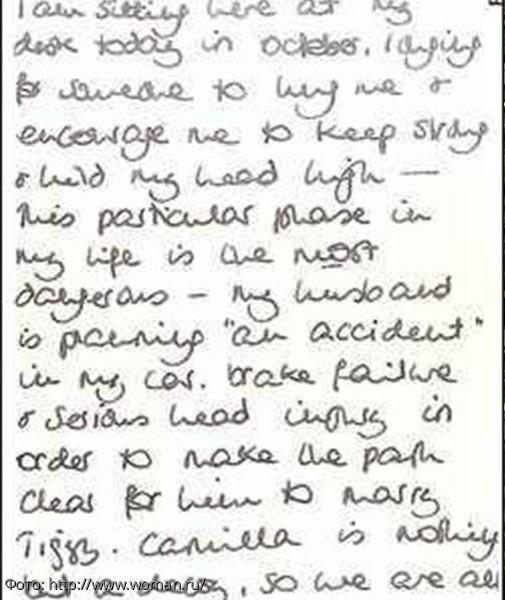 I am sitting here at my
desk today in october, longing
for someone to hug me &
encourage me to keep strong
& hold my head high —
this particular phase in
my life is the most
dangerous - my husband
is planning "an accident"
in my car. brake failure
& serious head injury in
order to make the path
clear for him to marry
Tiggy. Camilla is nothing
but a decoy, so we are all
Фото: http://www.woman.ru/